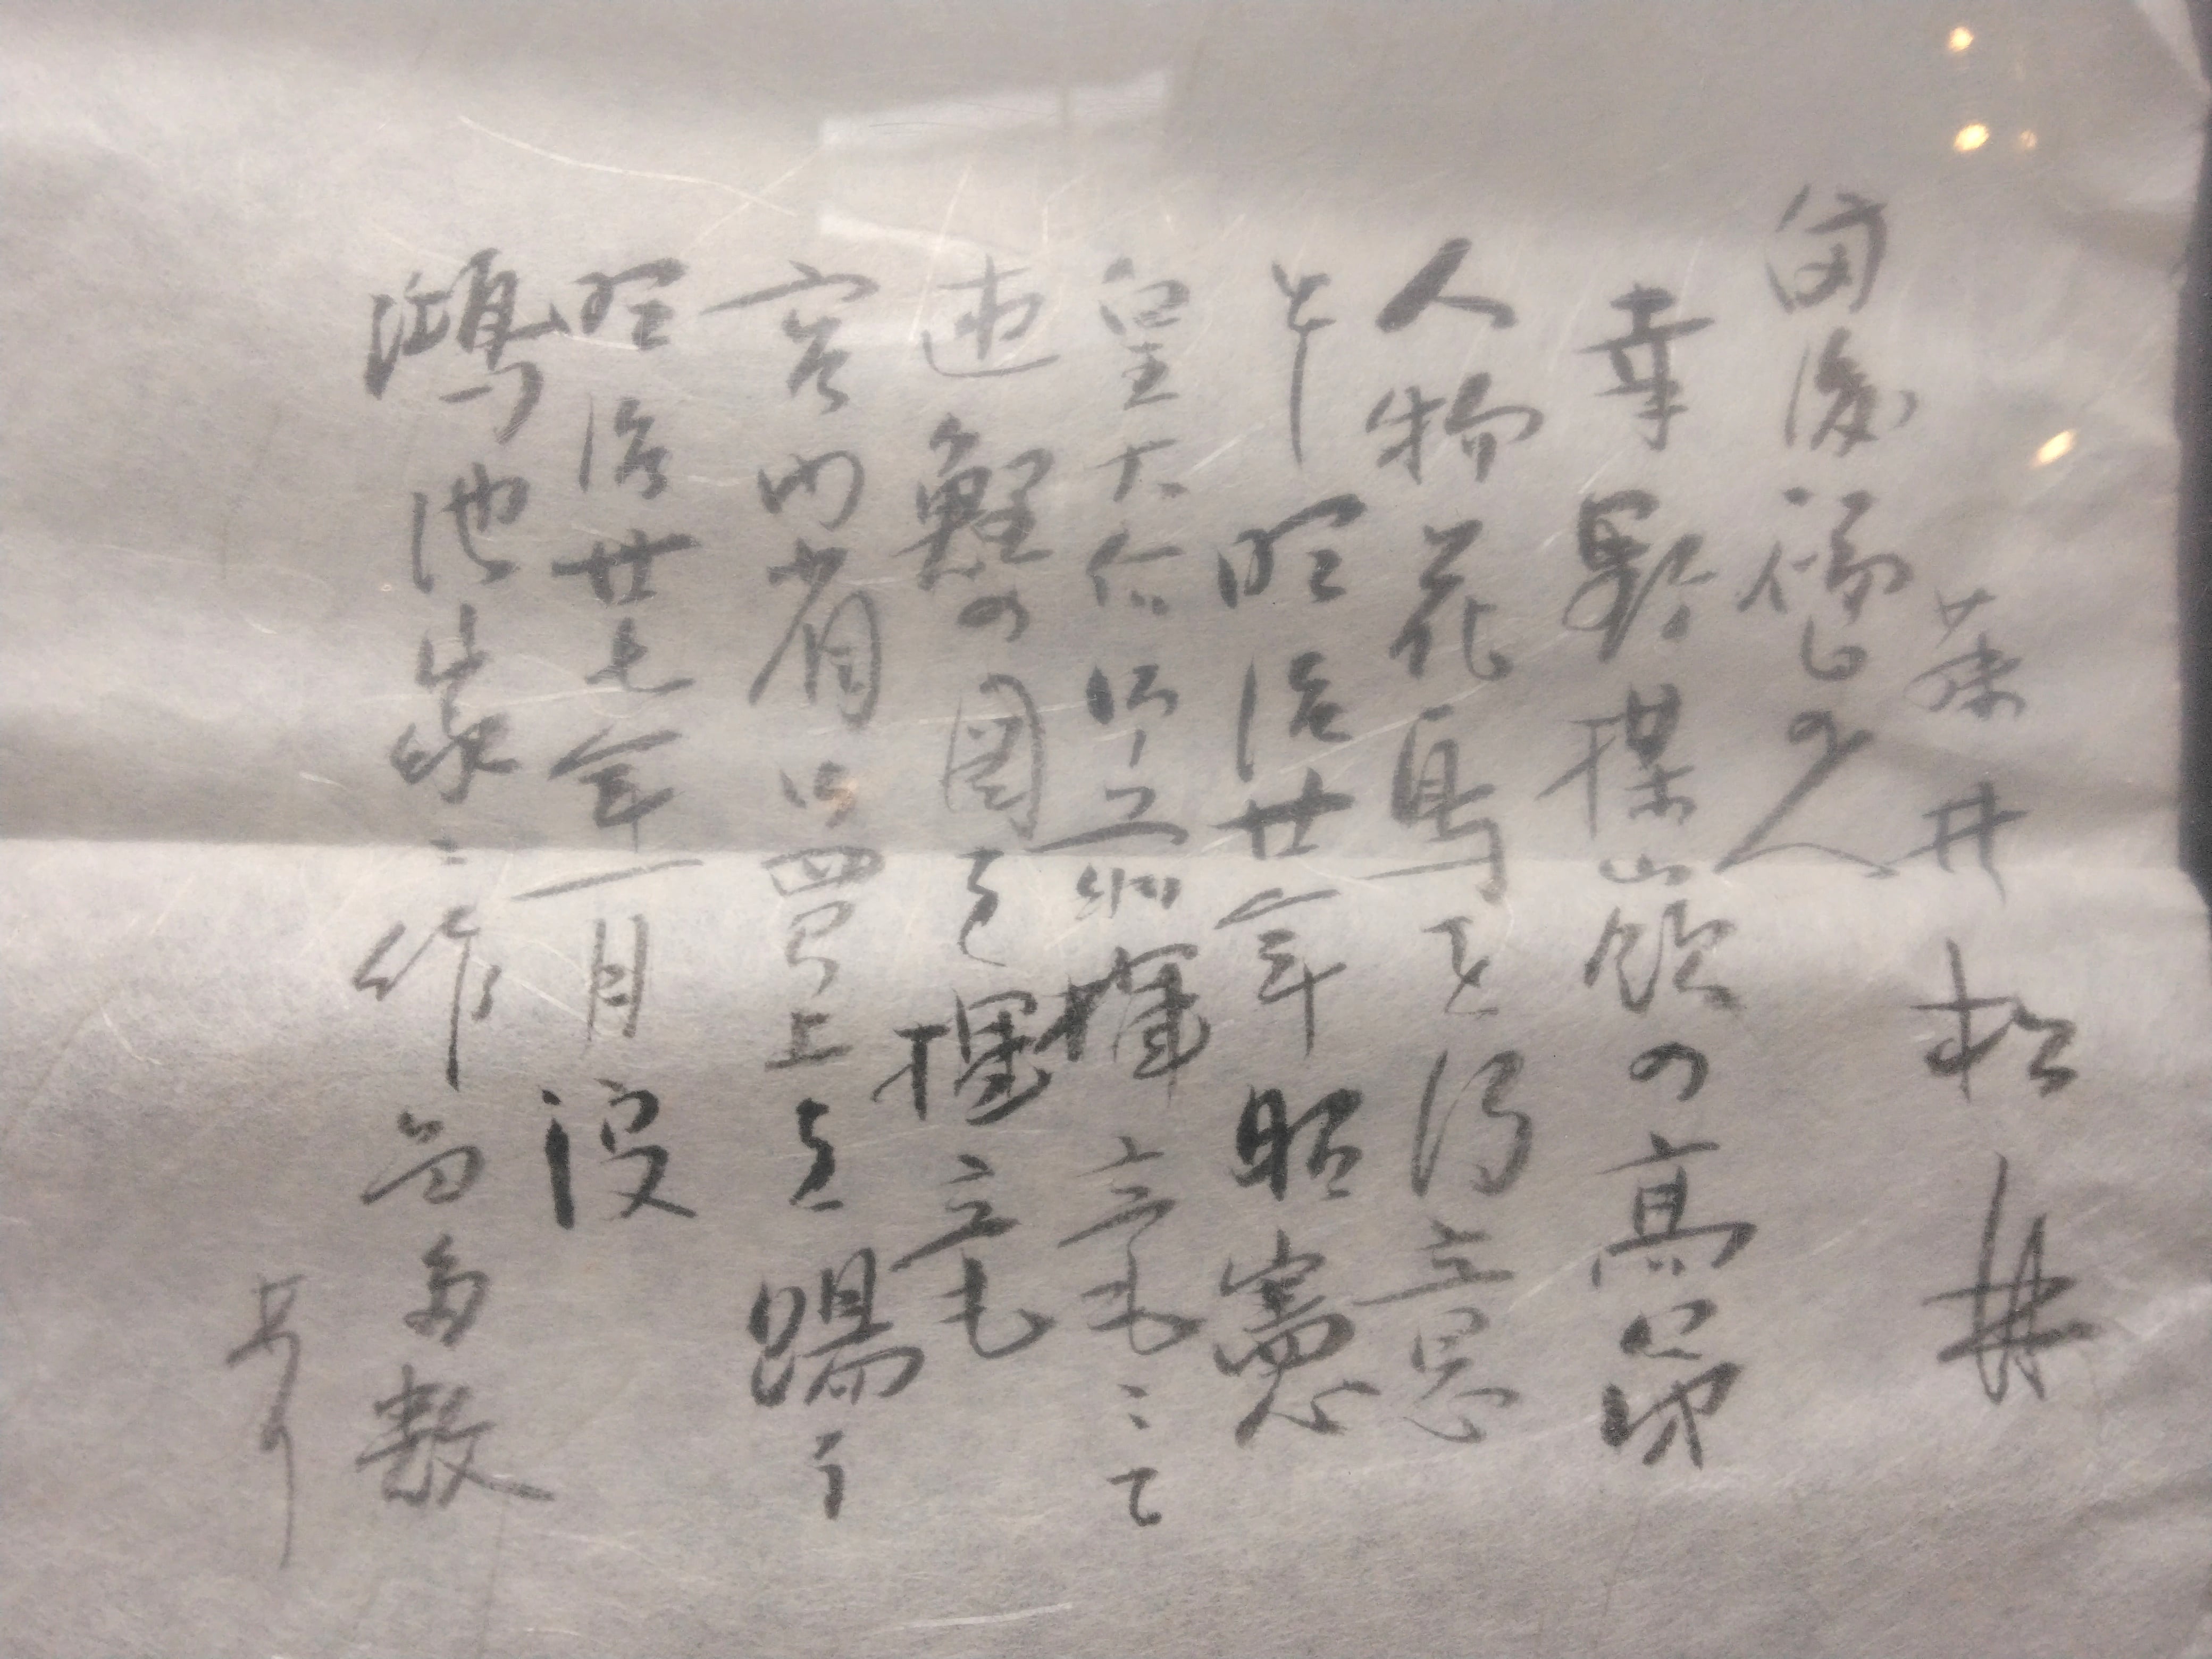 藤井松林
備後福山の人
幸野楳嶺の高弟
人物花鳥を得意
と 明治廿年昭憲
皇太 揮毫ニて
遊鯉の図を揮毫
宮内省御買上を賜う
明治廿七年一月没
鴻池家ニ作品多数
あり